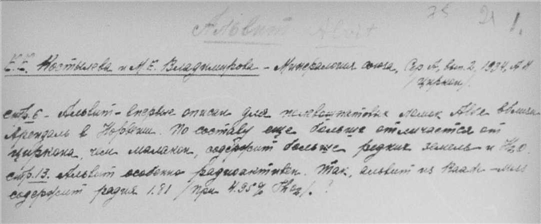 Альвит Alvit
Е.Е. Костылева и М.Е. Владимирова - Минералогия союза, Сер. А, вып. 2, 1934, А.Н
/циркон/.
стр. 6 - Альвит - впервые описан для Alve вблизи
Арендаль в Норвегии. По составу еще больше отличается от
циркона, чем малакон, содержит больше редких земель и H2O.
стр. 13. Альвит особенно радиоактивен. Так, альвит из
содержит радия 1.81 /при 4.95% ThO2/.